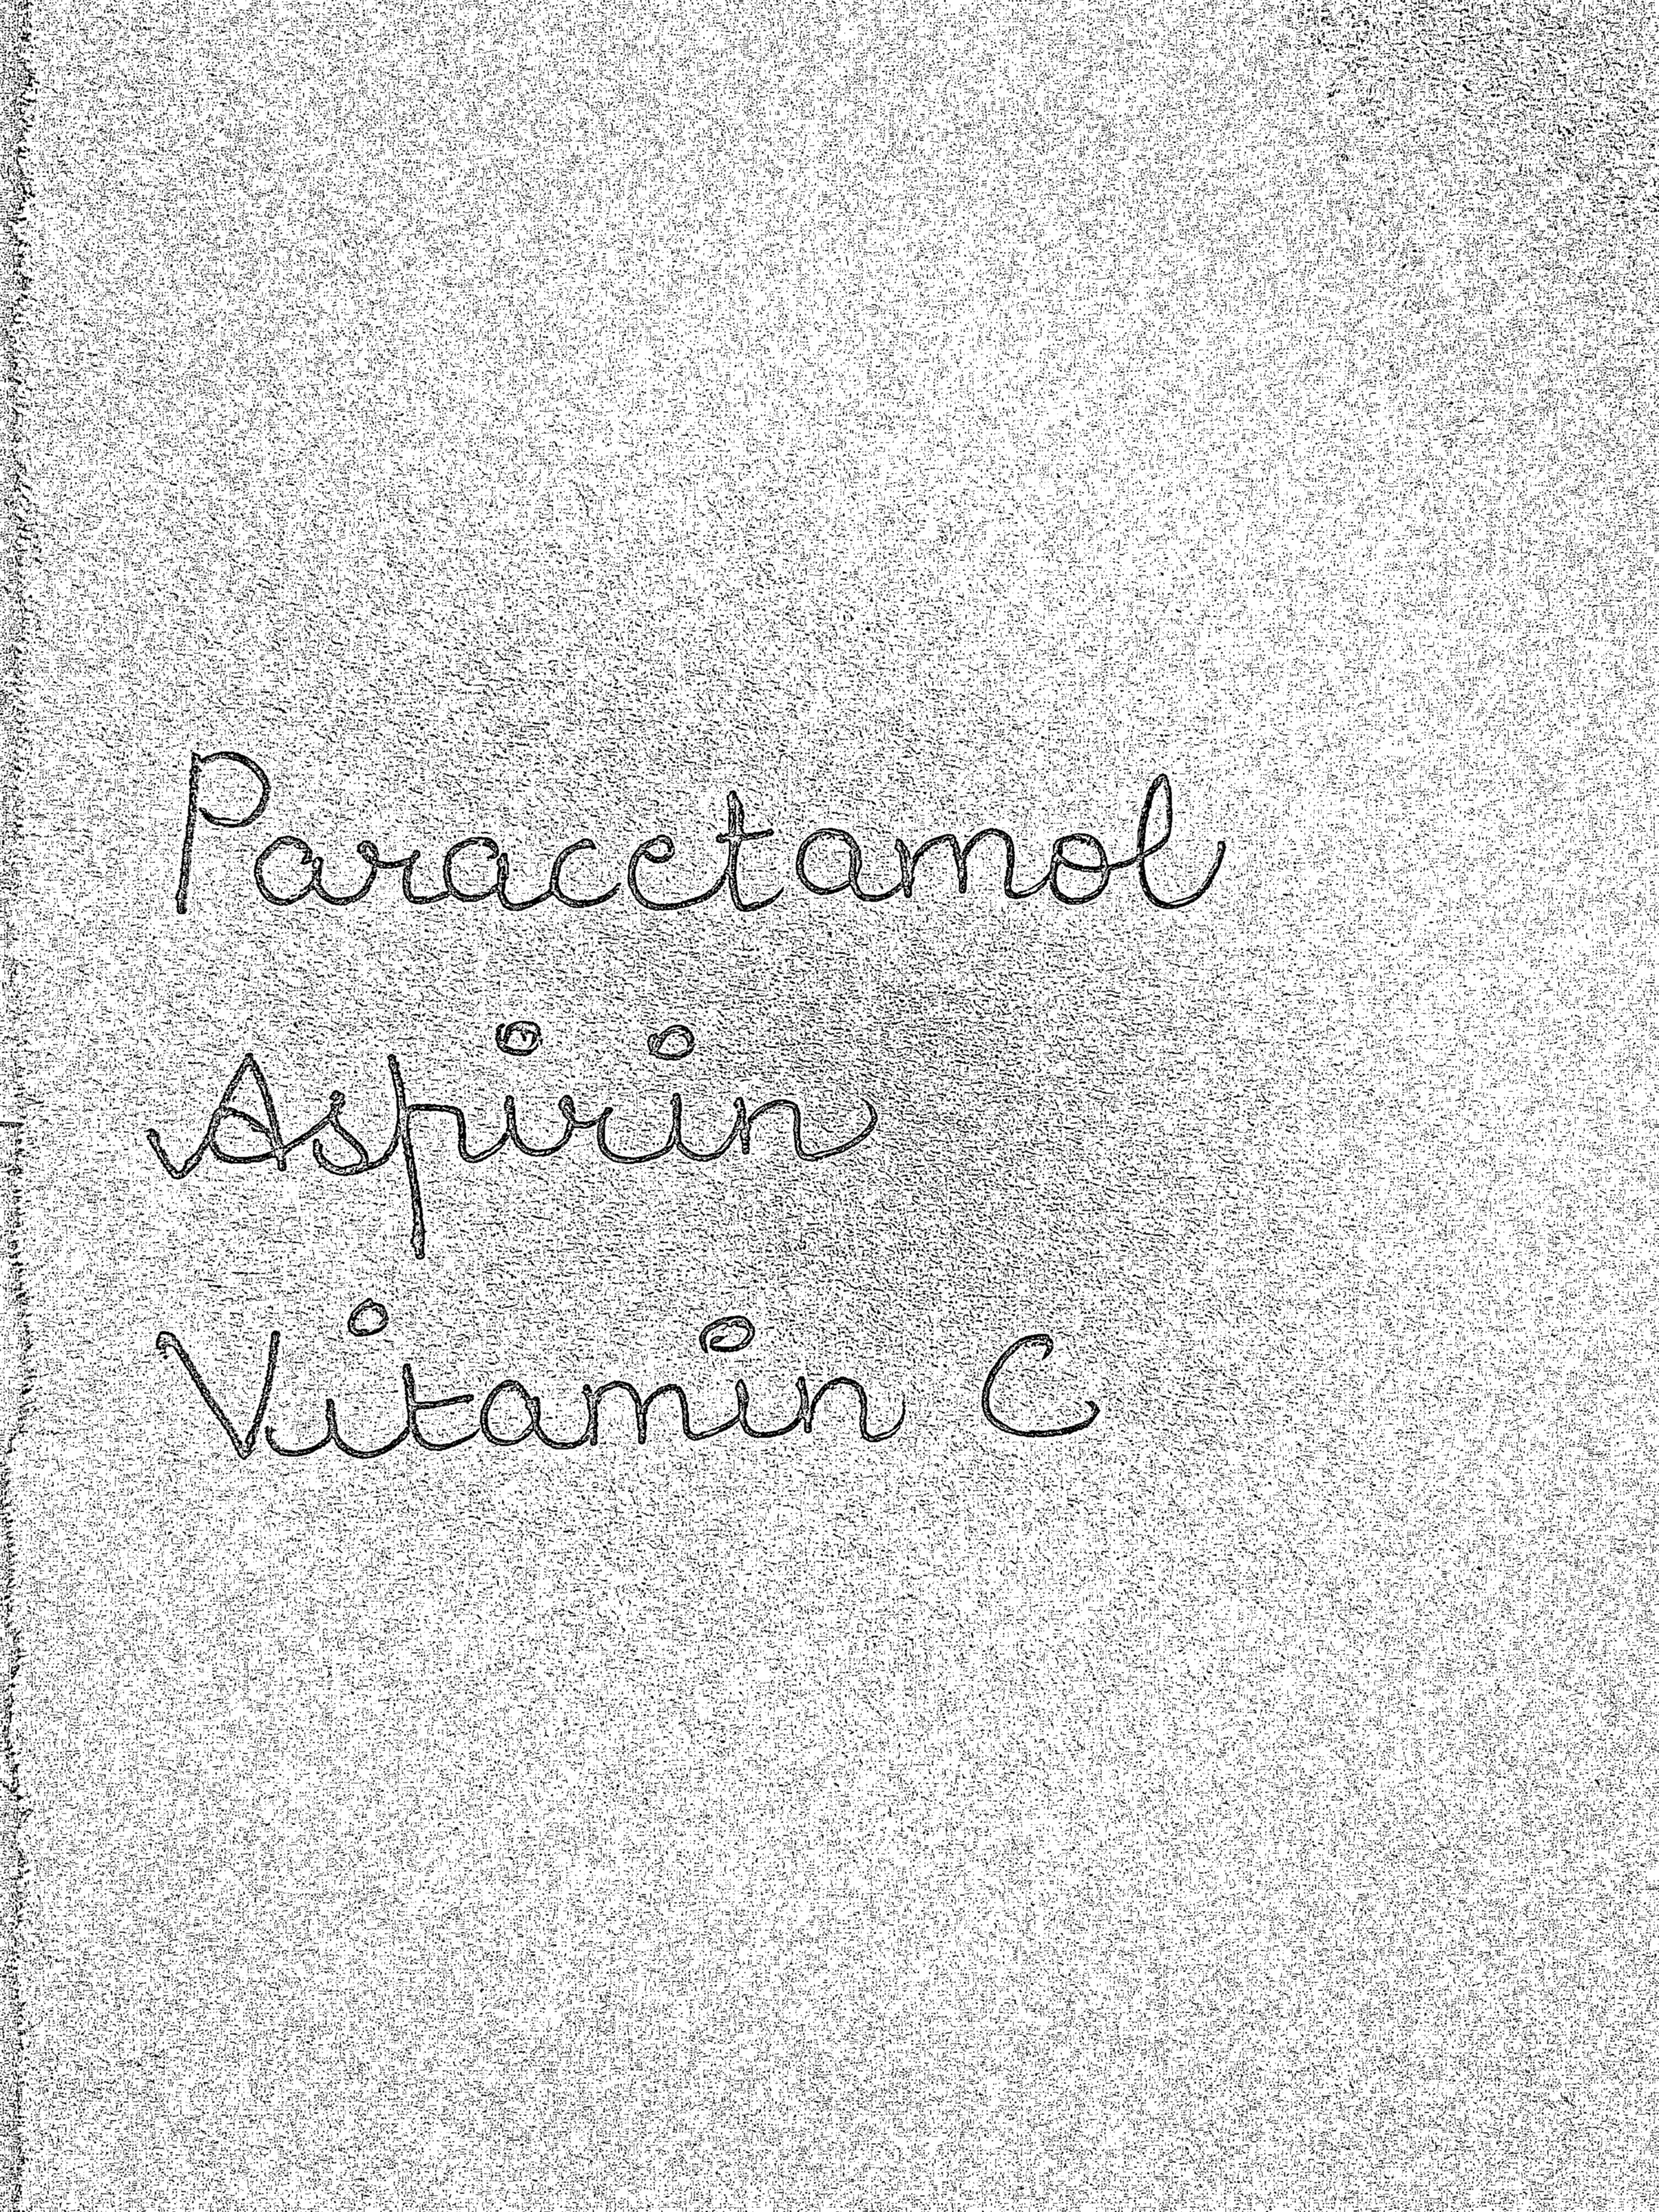 Paracetamol
Aspirin
Vitamin C